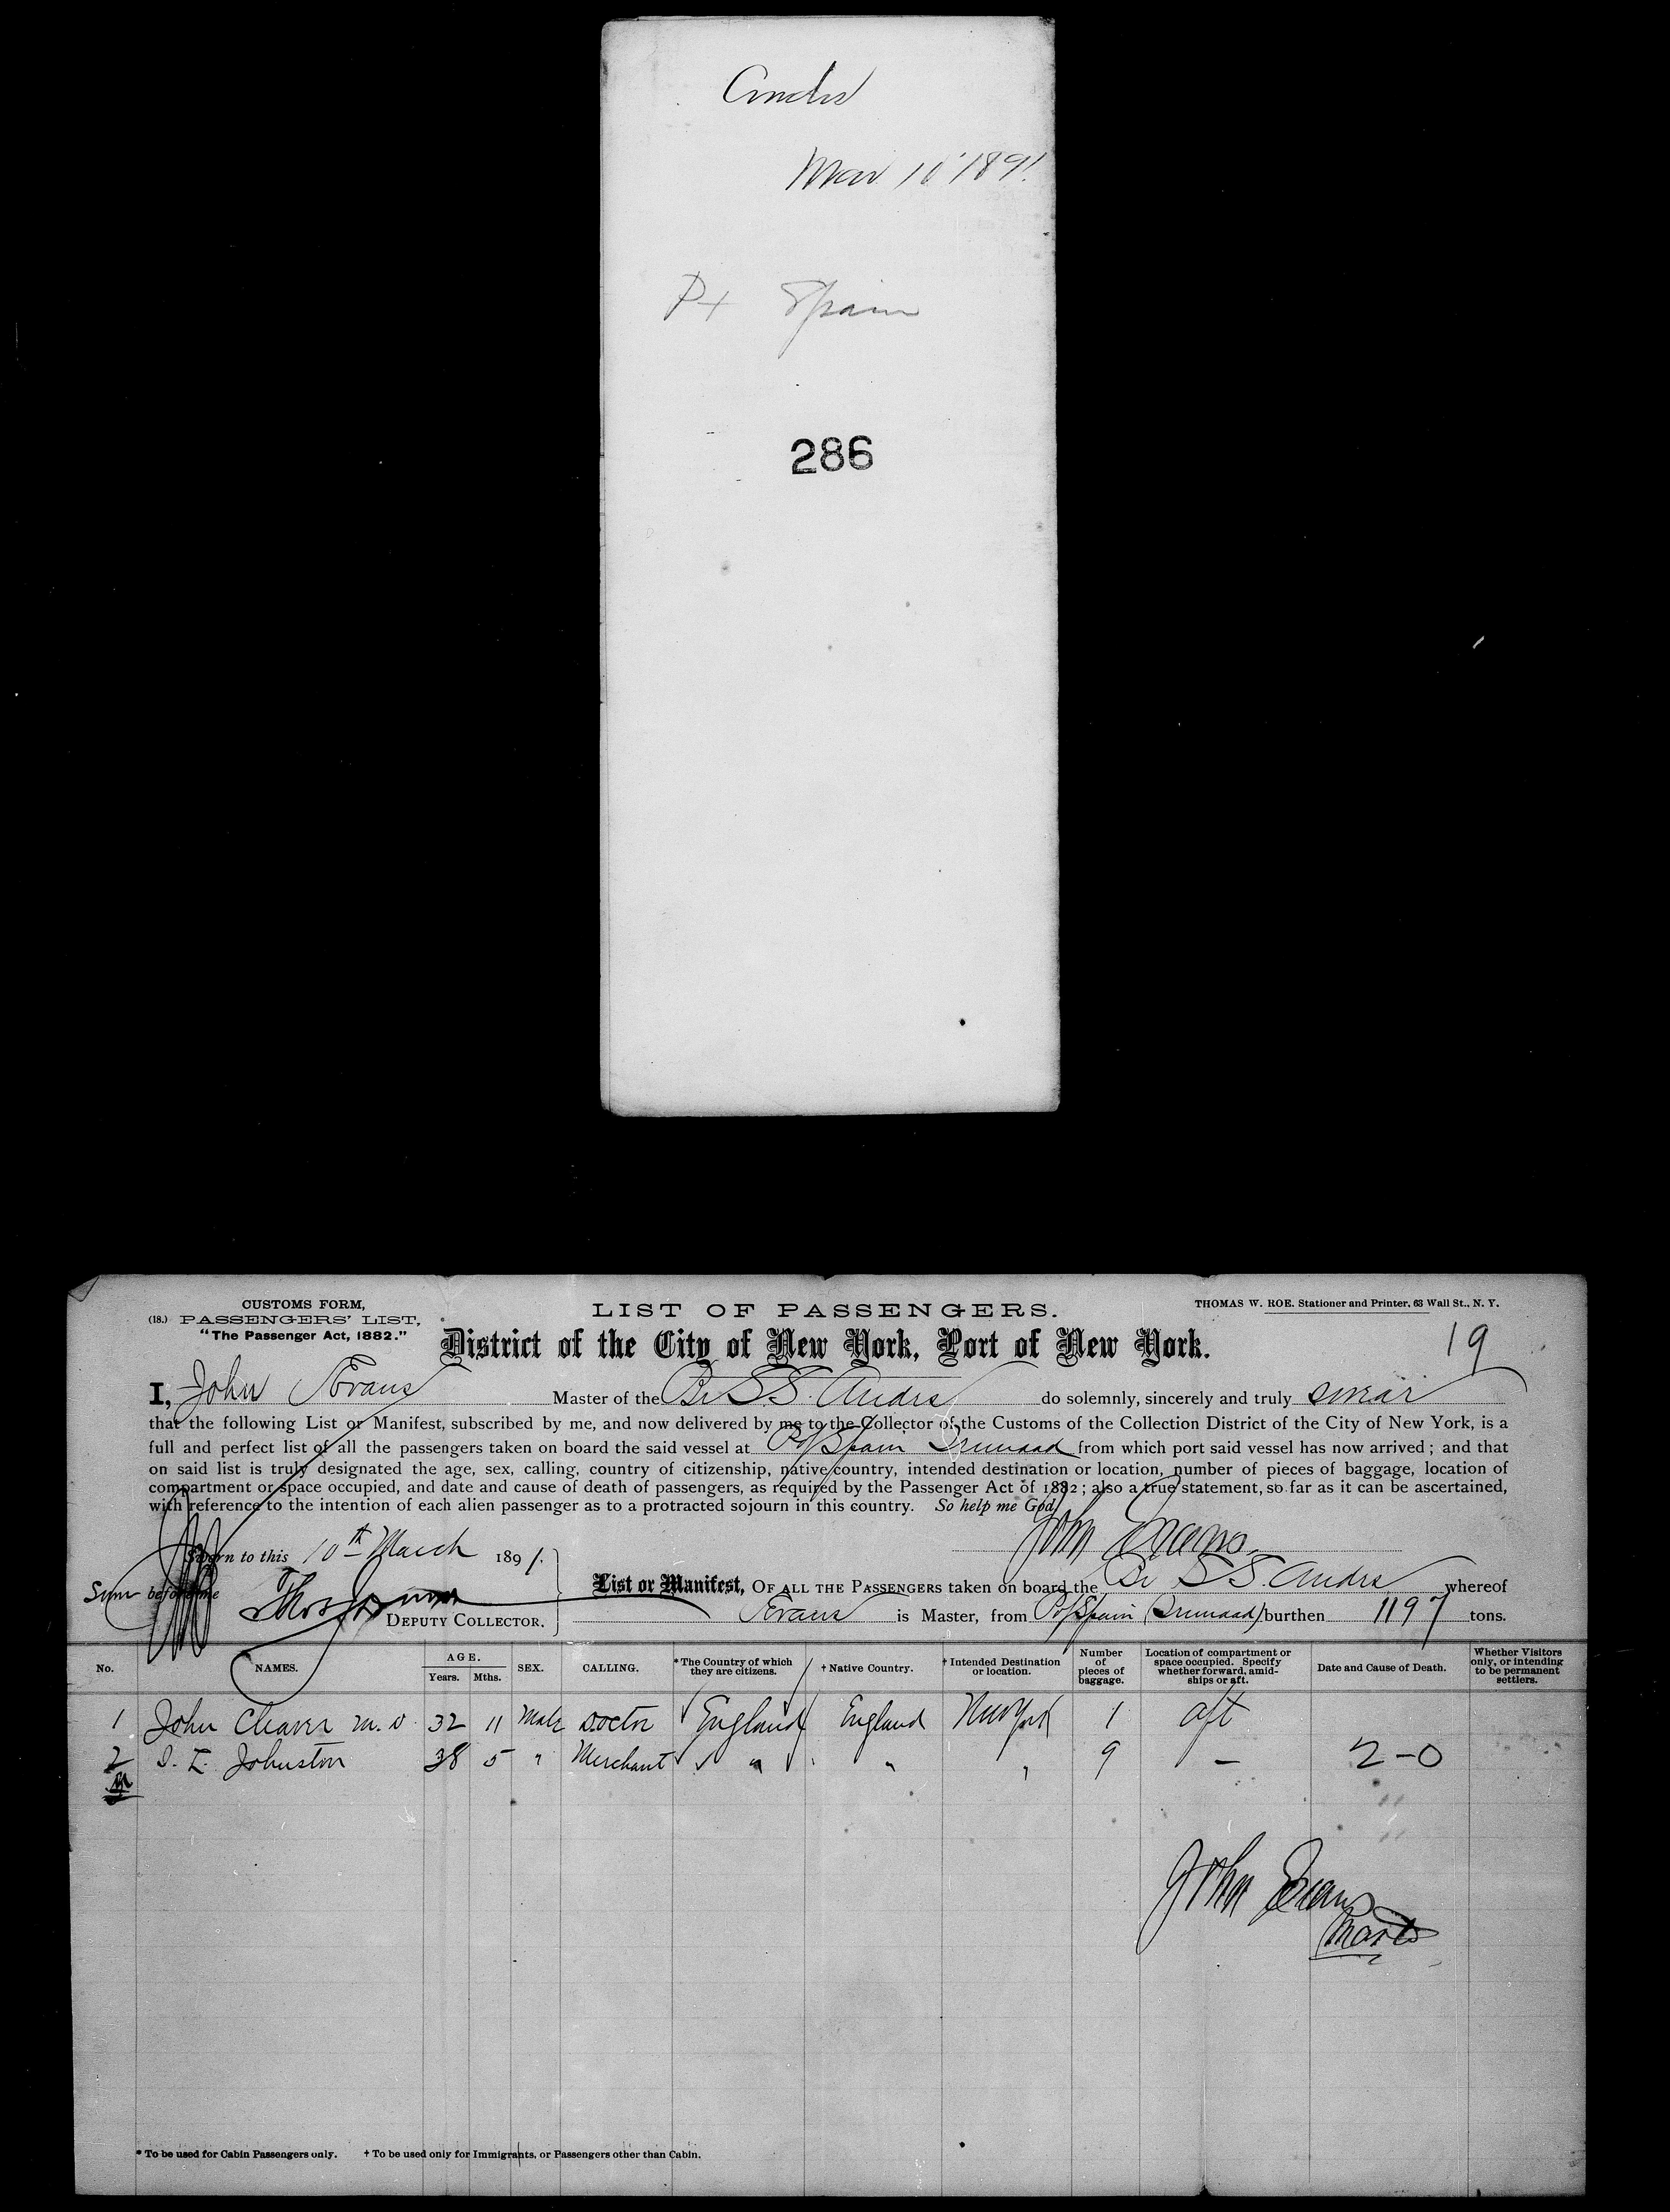 Andes
Mar 10 1891.
Pt Spain
286
CUSTOMS FORM,
(18.) PASSENGERS' LIST,
"The Passenger Act, 1882."
LIST OF PASSENGERS.
THOMAS W. ROE. Stationer and Printer, 63 Wall St., N. Y.
District of the City of New York, Port of New York.
19
I, John Evans Master of the Br S.S. Andes do solemnly, sincerely and truly swear
that the following List or Manifest, subscribed by me, and now delivered by me to the Collector of the Customs of the Collection District of the City of New York, is a
full and perfect list of all the passengers taken on board the said vessel at P of Spain Trinidad from which port said vessel has now arrived; and that
on said list is truly designated the age, sex, calling, country of citizenship, native country, intended destination or location, number of pieces of baggage, location of
compartment or space occupied, and date and cause of death of passengers, as required by the Passenger Act of 1882; also a true statement, so far as it can be ascertained,
with reference to the intention of each alien passenger as to a protracted sojourn in this country. So help me God.
John Evans
Sworn to this 10th March 1891.
before me
DEPUTY COLLECTOR.
List or Manifest, OF ALL THE PASSENGERS taken on board the Br S.S. Andes whereof
Evans is Master, from P of Spain (Trinidad) burthen 1197 tons.
No. NAMES. AGE. Years. Mths. SEX. CALLING. *The Country of which they are citizens. †Native Country. †Intended Destination or location. Number of pieces of baggage. Location of compartment or space occupied. Specify whether forward, amidships or aft. Date and Cause of Death. Whether Visitors only, or intending to be permanent settlers.
1 John Cleaver M.D. 32 11 Male Doctor England England New York 1 aft
2 Johnston 38 5 " Merchant " " " 9 – 2-0
John Evans
Master
* To be used for Cabin Passengers only. † To be used only for Immigrants, or Passengers other than Cabin.